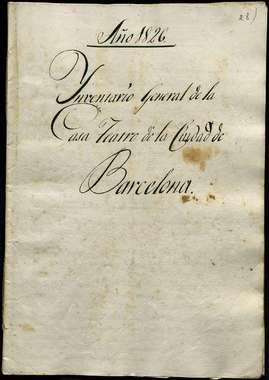 28)
Año 1826
Ynventario General de la
Casa Teatro de la Ciudad de
Barcelona.